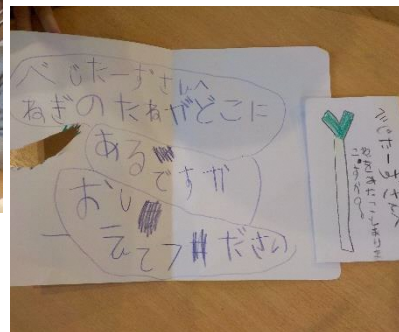 べじたーずさんへ
ねぎのたねがどこに
ある
ですか
おし
えてください
べじたーずさんへ